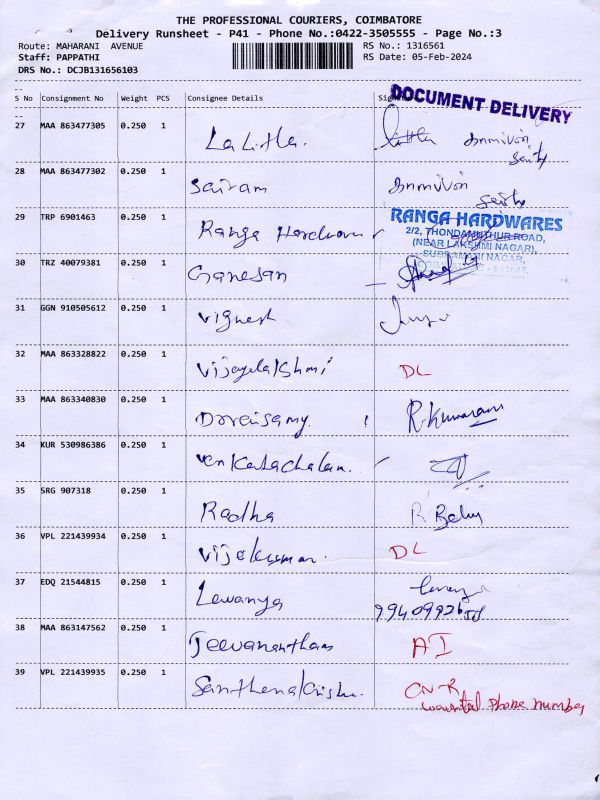 THE PROFESSIONAL COURIERS, COIMBATORE
Delivery Runsheet - P41 - Phone No.:0422-3505555 - Page No.:3
Route: MAHARANI AVENUE RS No.: 1316561
Staff: PAPPATHI RS Date: 05-Feb-2024
DRS No.: DCJB131656103
DOCUMENT DELIVERY
S No Consignment No Weight PCS Consignee Details
27 MAA 863477305 0.250 1 Lalitha.
28 MAA 863477302 0.250 1 Sairam
29 TRP 6901463 0.250 1 Ranga Hardware
RANGA HARDWARES
2/2, THONDAMUTHUR ROAD,
(NEAR LAKSHMI NAGAR),
SUBRAMANI NAGAR,
30 TRZ 40079381 0.250 1 Ganesan
31 GGN 910505612 0.250 1 Vignesh
32 MAA 863328822 0.250 1 Vijayalakshmi DL
33 MAA 863340830 0.250 1 Doraisamy. R.Kumaran
34 KUR 530986386 0.250 1 Venkatachalam.
35 SRG 907318 0.250 1 Radha R Baby
36 VPL 221439934 0.250 1 Vijakumar. DL
37 EDQ 21544815 0.250 1 Lawanya
38 MAA 863147562 0.250 1 Jeevanantham AI
39 VPL 221439935 0.250 1 CN-R
wanted phone number